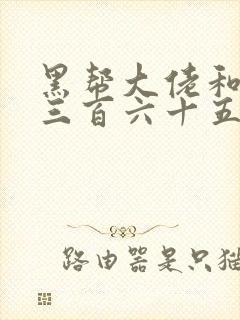 黑帮大佬和
三百六十五
路由器是只猫